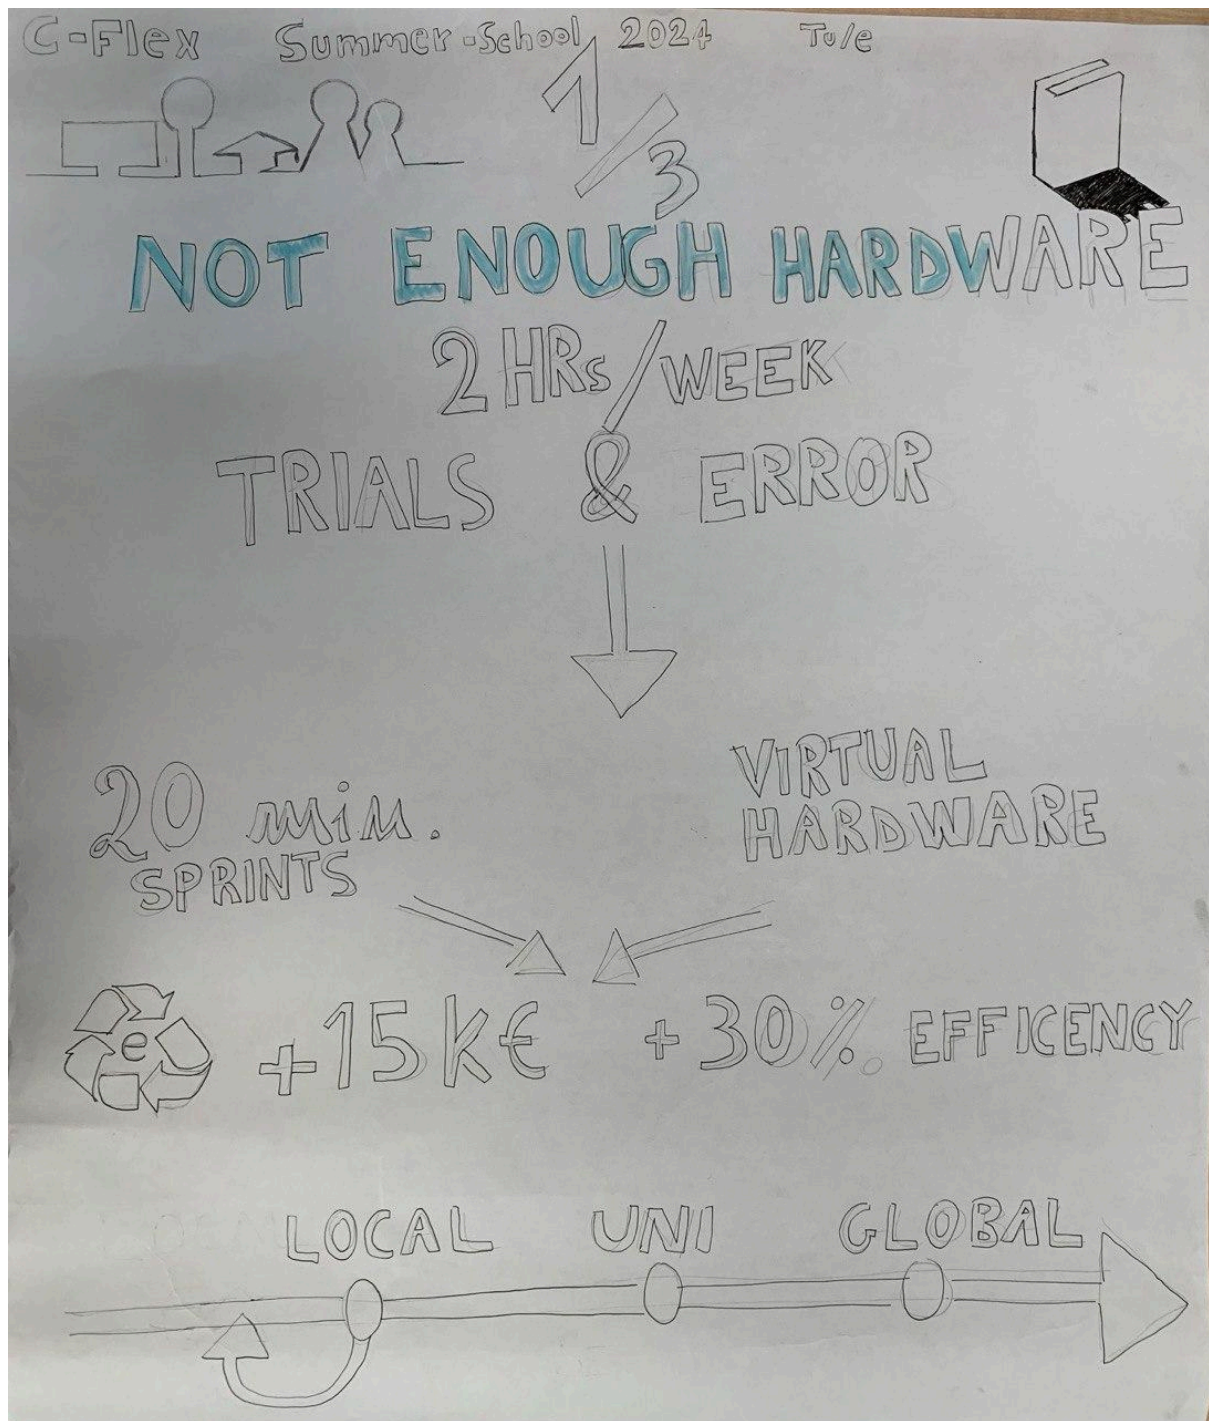 C-Flex Summer-School 2024 Tu/e
1/3
NOT ENOUGH HARDWARE
2 HRs/WEEK
TRIALS & ERROR
20 min.
SPRINTS
VIRTUAL
HARDWARE
e +15k€ +30% EFFICENCY
LOCAL UNI GLOBAL